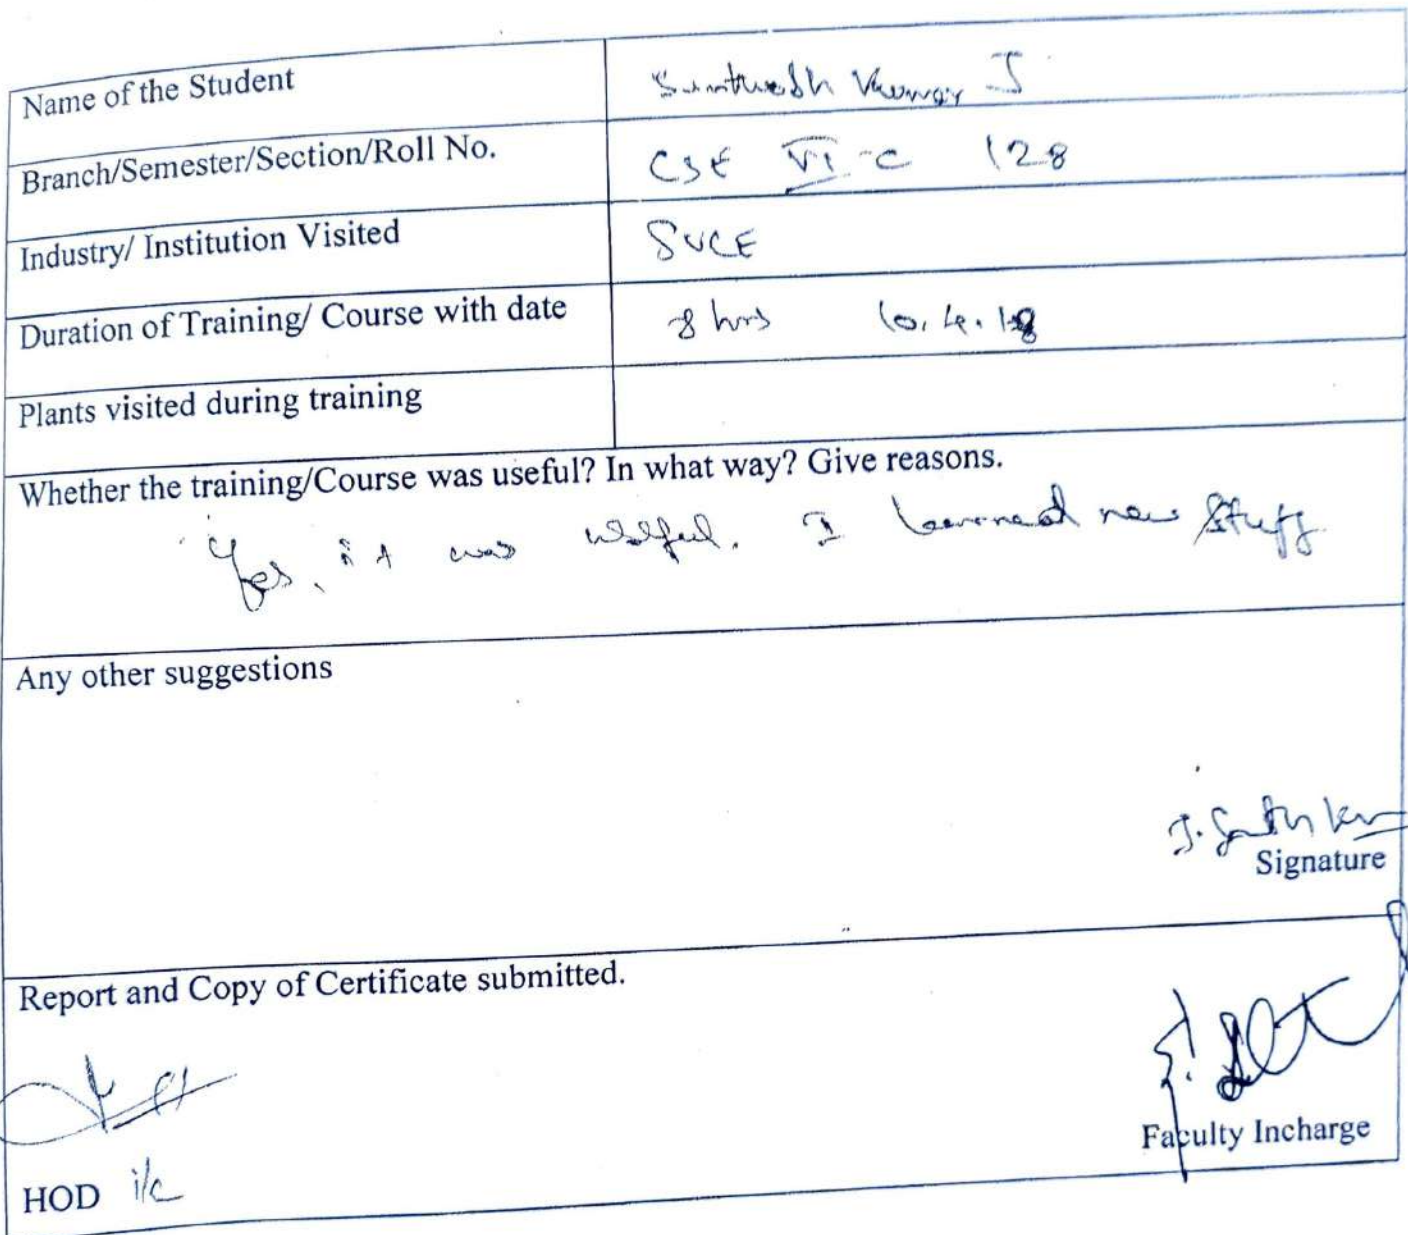 Name of the Student Santhosh Kumar J
Branch/Semester/Section/Roll No. CSE VI-C 128
Industry/ Institution Visited SVCE
Duration of Training/ Course with date 8 hrs 10.4.18
Plants visited during training
Whether the training/Course was useful? In what way? Give reasons.
Yes, it was useful. I learned new stuff
Any other suggestions
J.
Signature
Report and Copy of Certificate submitted.
Faculty Incharge
HOD i/c